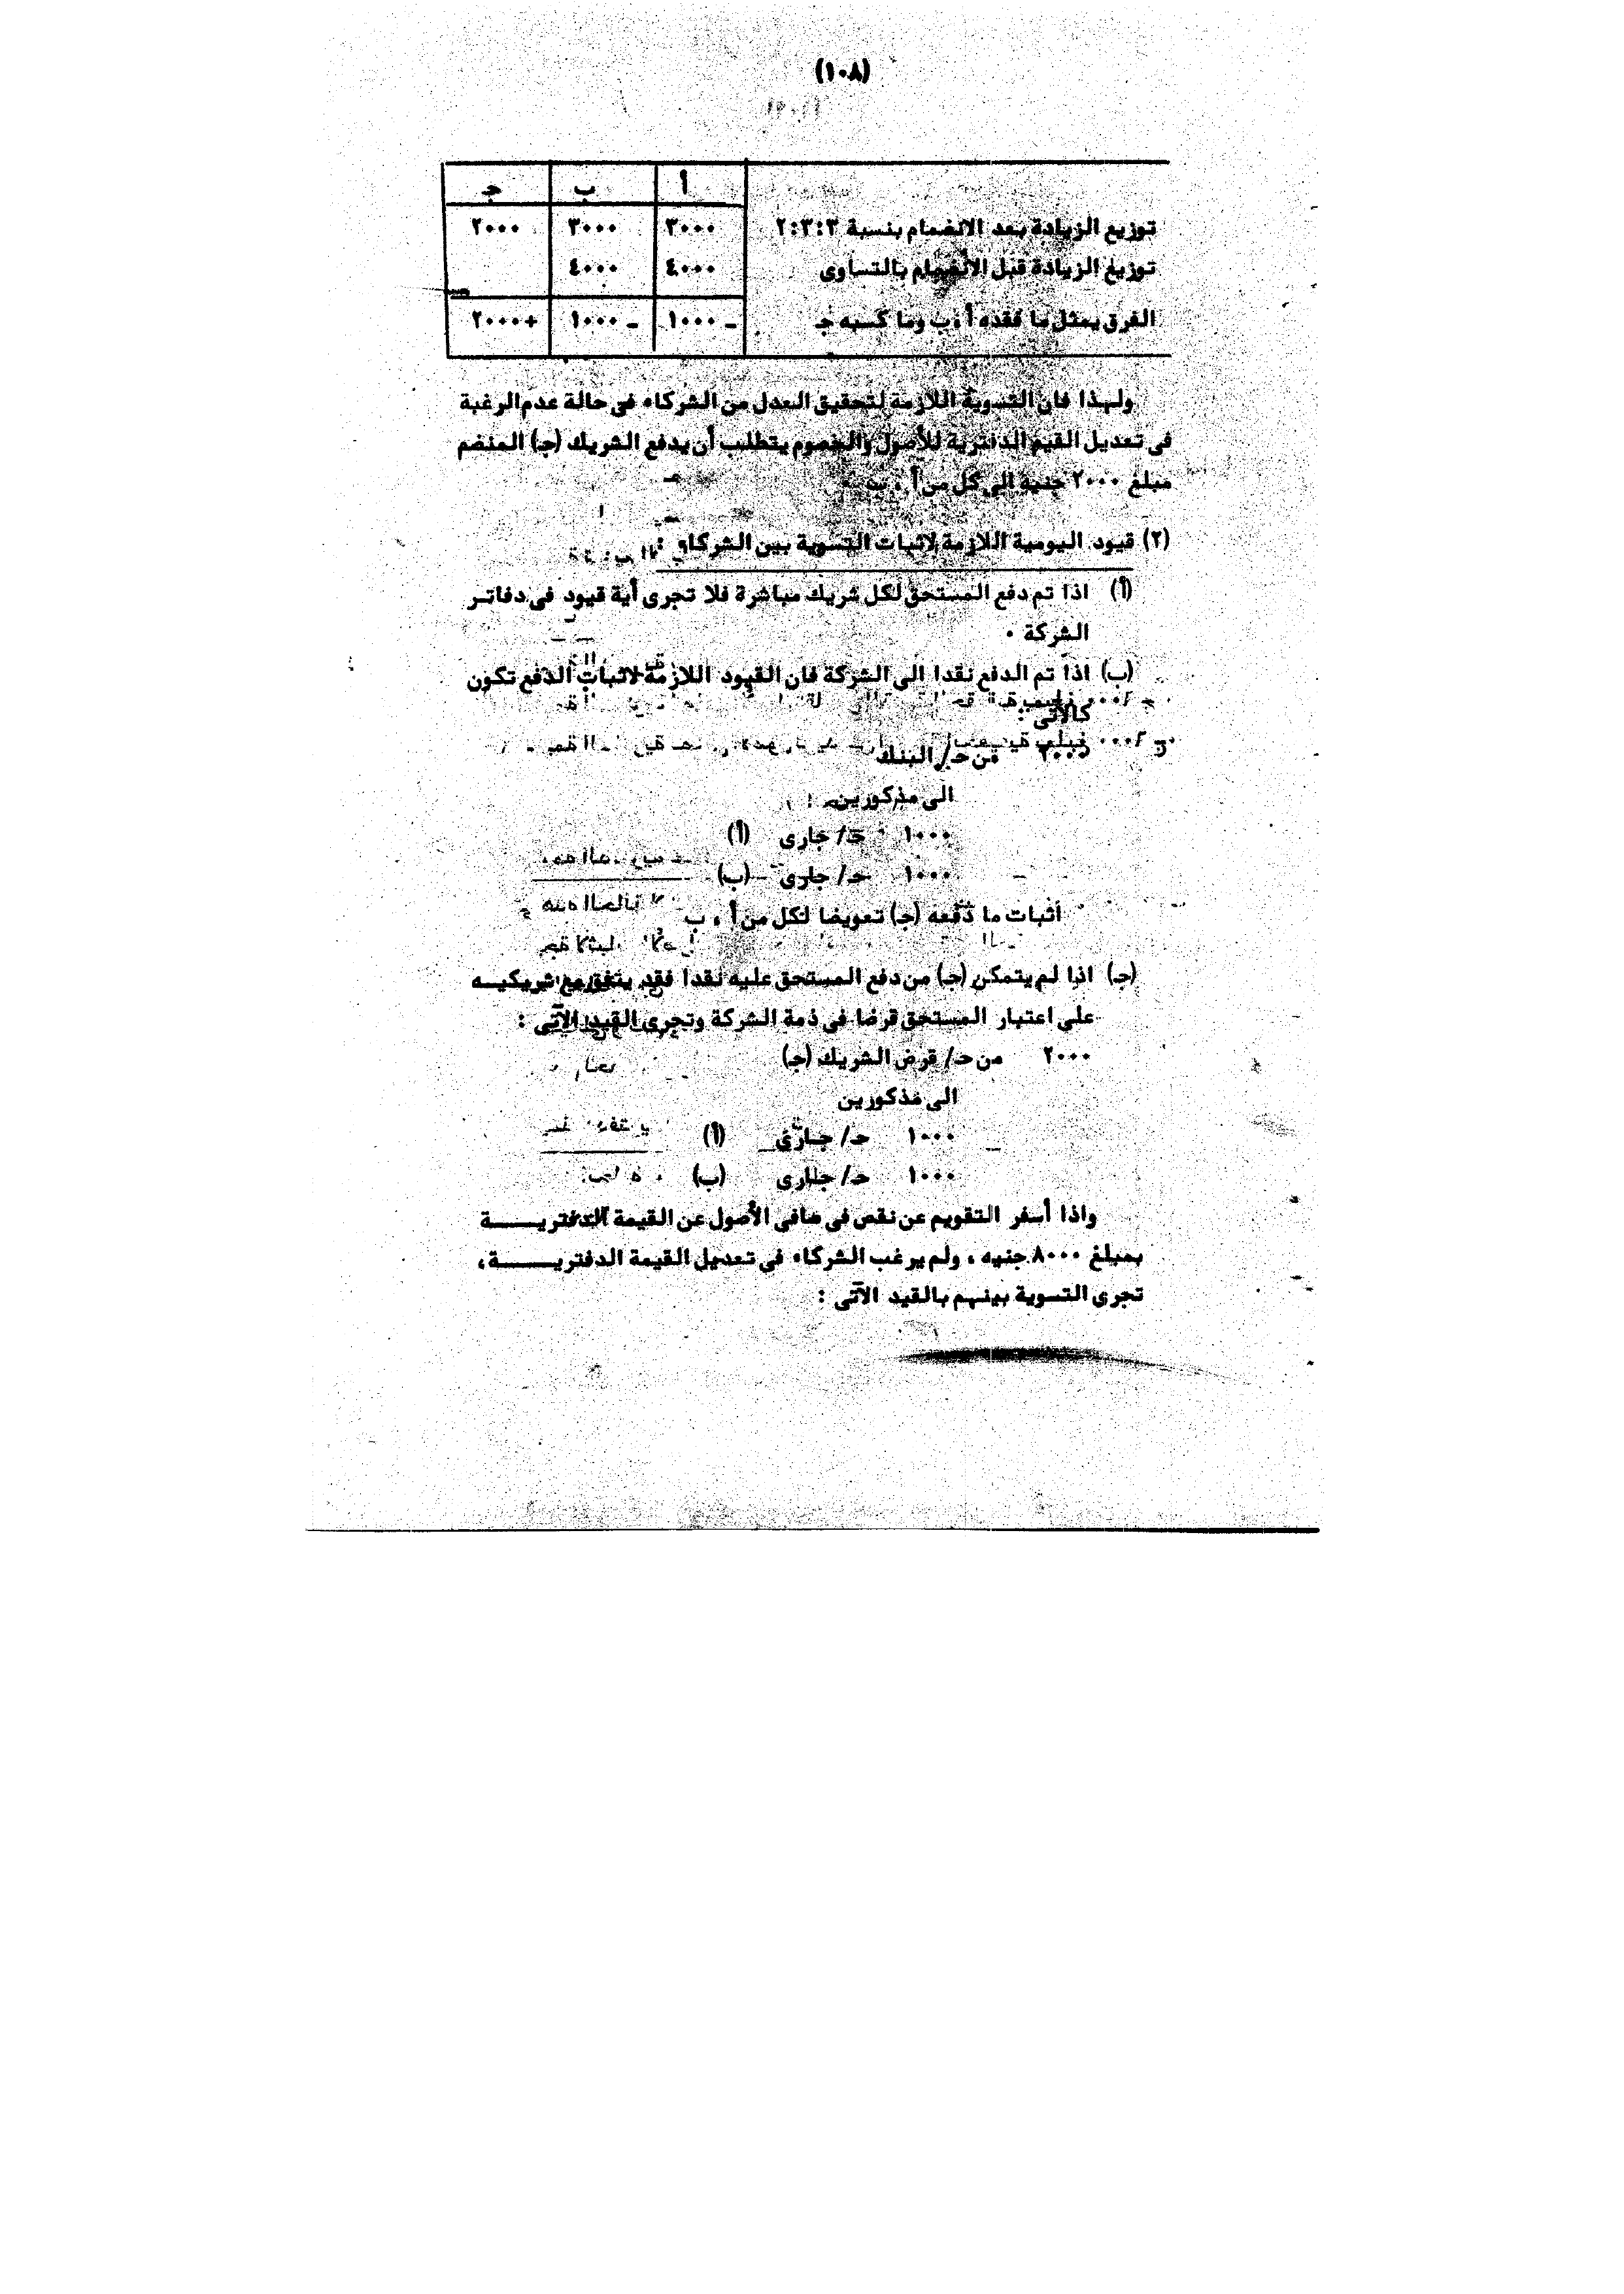 (١٠٨)
أ ب جـ
توزيع الزيادة بعد الانضمام بنسبة ٣:٣:٢ ٣٠٠٠ ٣٠٠٠ ٢٠٠٠
توزيع الزيادة قبل الانضمام بالتساوى ٤٠٠٠ ٤٠٠٠ ــ
الفرق يمثل ما فقده أ ، ب وما كسبه جـ ـ ١٠٠٠ ـ ١٠٠٠ +٢٠٠٠
ولهذا فان التسوية اللازمة لتحقيق العدل من الشركاء فى حالة عدم الرغبة
فى تعديل القيم الدفترية للأصول والخصوم يتطلب أن يدفع الشريك (جـ) المنضم
مبلغ ٢٠٠٠ جنيه الى كل من أ ، ب ٠
(٢) قيود اليومية اللازمة لاثبات التسوية بين الشركاء :
(أ) اذا تم دفع المستحق لكل شريك مباشرة فلا تجرى أية قيود فى دفاتـر
الشركة ٠
(ب) اذا تم الدفع نقدا الى الشركة فان القيود اللازمة لاثبات الدفع تكون
كالآتى :
٢٠٠٠ من حـ/ البنك
الى مذكورين
١٠٠٠ حـ/ جارى (أ)
١٠٠٠ حـ/ جارى (ب)
اثبات ما دفعه (جـ) تعويضا لكل من أ ، ب
(جـ) اذا لم يتمكن (جـ) من دفع المستحق عليه نقدا فقد يتفق مع شريكيــه
على اعتبار المستحق قرضا فى ذمة الشركة وتجرى القيد الآتى :
٢٠٠٠ من حـ/ قرض الشريك (جـ)
الى مذكورين
١٠٠٠ حـ/ جـارى (أ)
١٠٠٠ حـ/ جـارى (ب)
واذا أسفر التقويم عن نقص فى صافى الأصول عن القيمة الدفتريـــــــة
بمبلغ ٨٠٠٠ جنيه ، ولم يرغب الشركاء فى تعديل القيمة الدفتريـــــــــة ،
تجرى التسوية بينهم بالقيد الآتى :